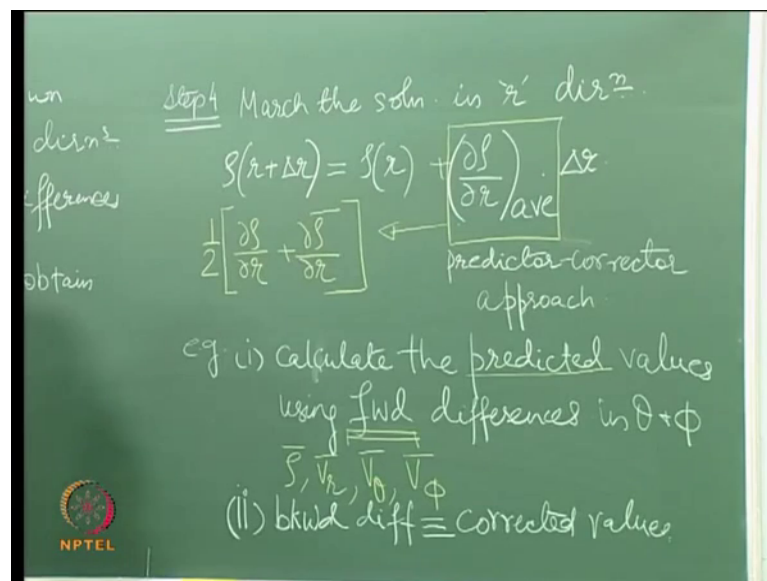 un
dirn²
fferences
obtain
Step4 March the soln. in 'r' dirⁿ.
ρ(r+Δr) = ρ(r) + (∂ρ/∂r)ave Δr
1/2 [∂ρ/∂r + ∂ρ̄/∂r]
predictor-corrector
approach.
eg (i) calculate the predicted values
using fwd differences in θ + φ
ρ̄, V̄r, V̄θ, V̄φ
(ii) bkwd diff ≡ corrected values.
NPTEL